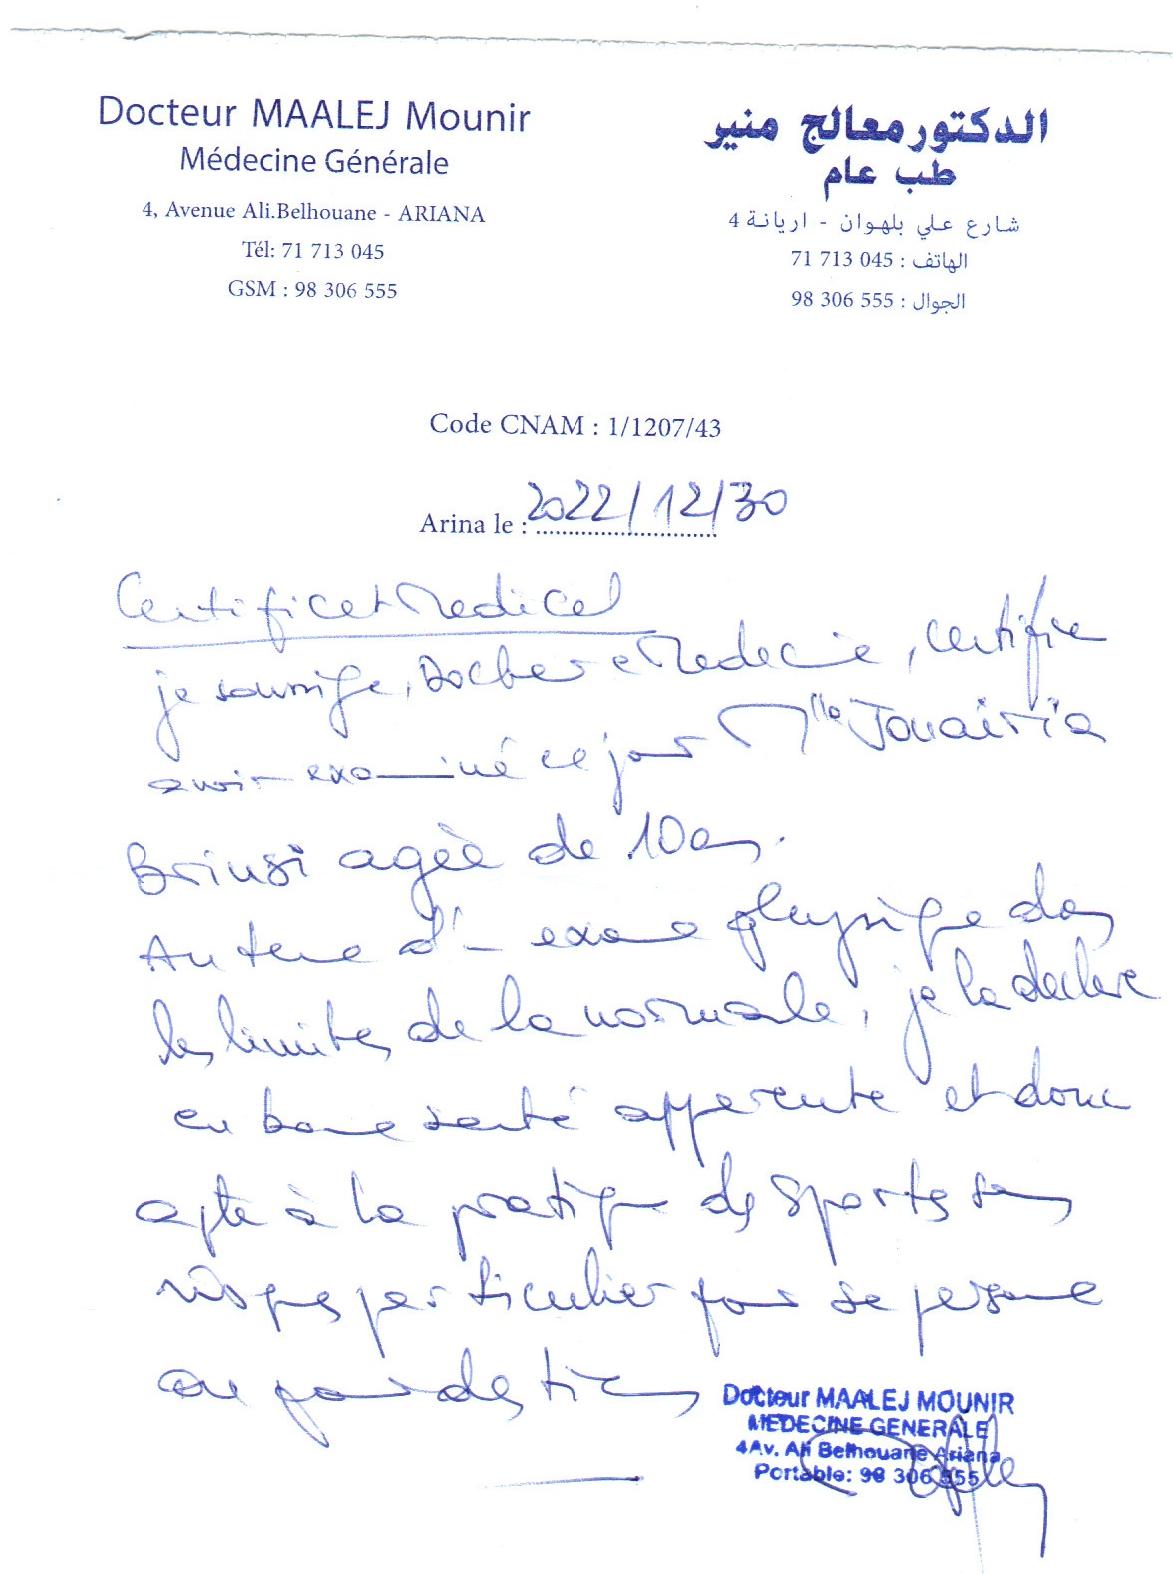 Docteur MAALEJ Mounir
Médecine Générale
4, Avenue Ali.Belhouane - ARIANA
Tél: 71 713 045
GSM : 98 306 555
الدكتور معالج منير
طب عام
4 شارع علي بلهوان - اريانة
الهاتف : 71 713 045
الجوال : 98 306 555
Code CNAM : 1/1207/43
Arina le : 2022/12/30
Certificat Medical
je soussigné, Docteur en Medecine, certifie
avoir examiné ce jour Mlle Jouairia
Brinsi agèe de 10 ans.
Au terme d'un examen physique dans
les limites de la normale, je la declare
en bonne santé apparente et donc
apte à la pratique des sports sans
risques particulier pour sa personne
ou pour des tiers
Docteur MAALEJ MOUNIR
MEDECINE GENERALE
4Av. Ali Belhouane Ariana
Portable: 98 306 555